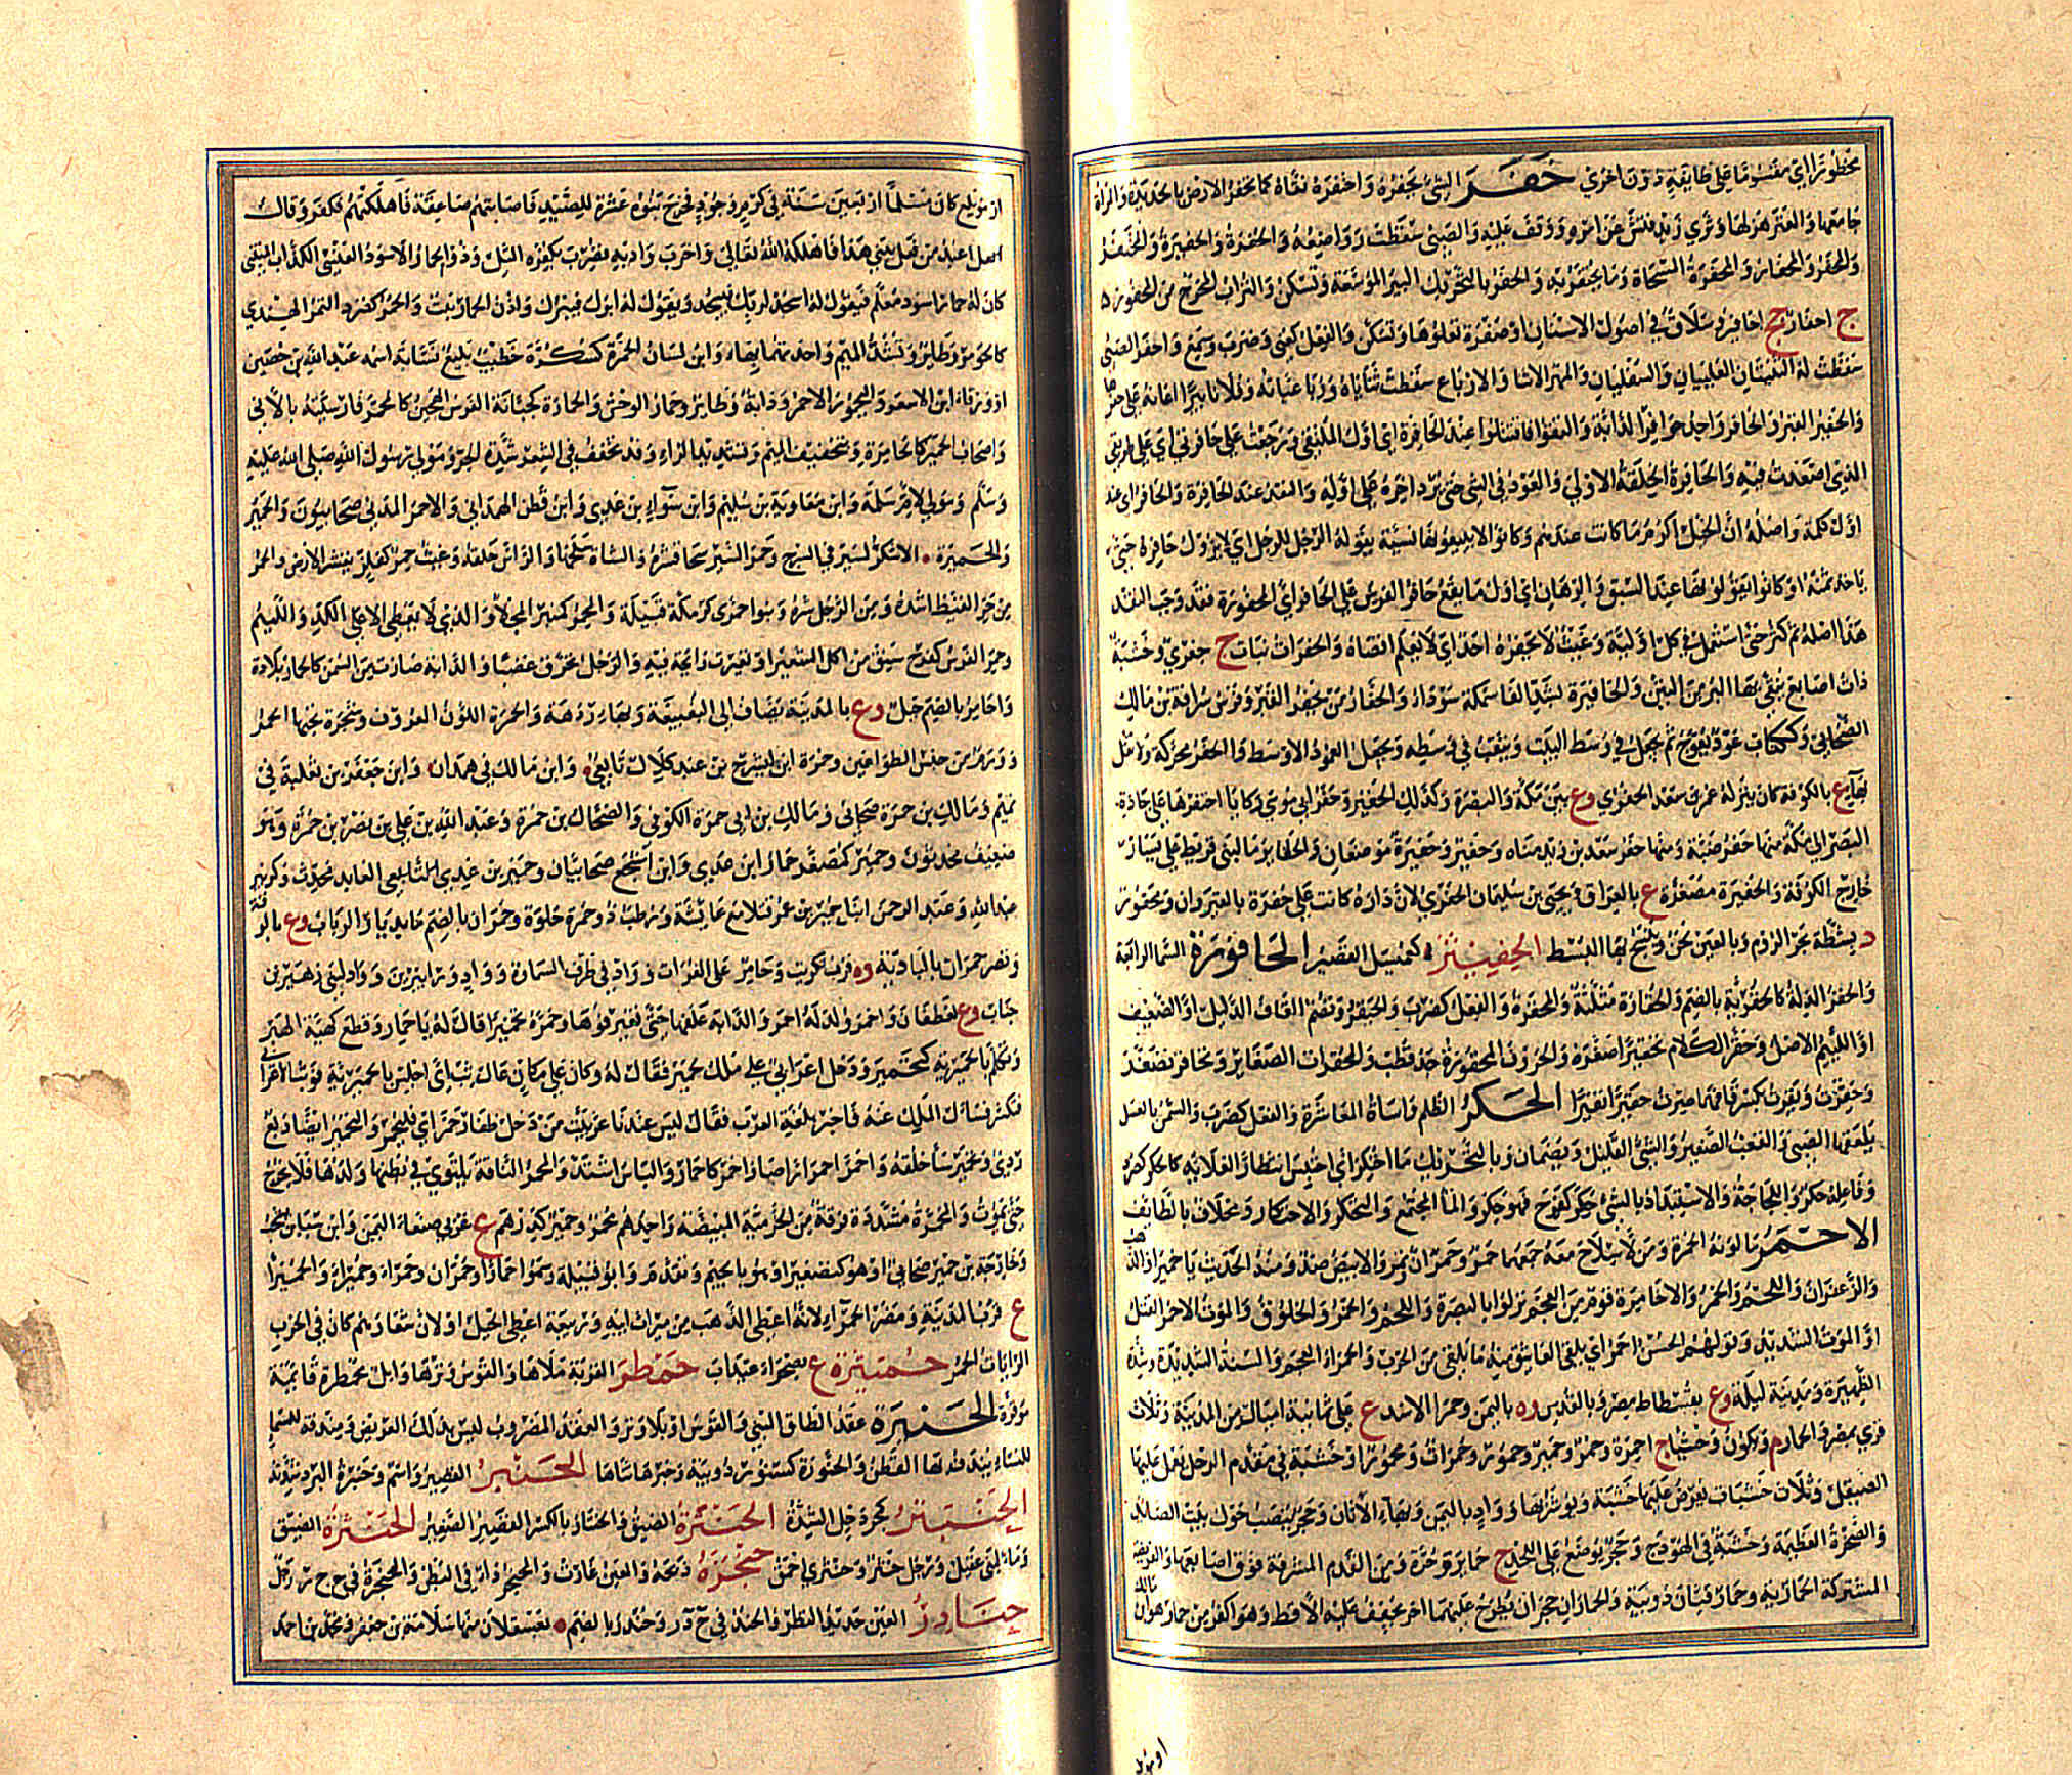 محظورا اي مقسوما على طائفة دون اخرى حَفَرَ الشئ يحفره واحتفره نقاه كما يحفر الارض بالحديدة والمراة
جامعها والعنز هزلها وثرى زيد فتش عن امره ووقف عليه والصبى سقطت رواضعه والحفرة والحفيرة والحفر
والحفر والحفار والمحفرة المسحاة وما يحتفر به والحفر بالتحريك البير الموسعة وتسكن والتراب المخرج من المحفور
ج احفار جج احافير وسلاق في اصول الاسنان او صفرة تعلوها وتسكن والفعل كعنى وضرب وسمع واحفر الصبى
سقطت له الثنيتان العلييان والسفليان والمهر للاثناء والارباع سقطت ثناياه ورباعياته وفلانا بيرا اعانه على حفرها
والحفير القبر والحافر واحد حوافر الدابة والتقوا فاقتتلوا عند الحافرة اي اول الملتقى ورجعت على حافرتي اي على طريقي
الذي اصعدت فيه والحافرة الخلقة الاولى والعود في الشئ حتى يرد اخره على اوله والنقد عند الحافرة والحافر اي عند
اول كلمة واصله ان الخيل اكرم ما كانت عندهم وكانوا لا يبيعونها نسيئة يقوله الرجل للرجل اي لا يزول حافره حتى
ياخذ ثمنه او كانوا يقولونها عند السبق والرهان اي اول ما يقع حافر الفرس على الحافر اي المحفورة فقد وجب النقد
هذا اصله ثم كثر حتى استعمل في كل اولية وغيث لا يحفره احد اي لا يعلم اقصاه والحفراة نبات ج حفرى وخشبة
ذات اصابع ينقى بها البر من التبن والحافيرة بشد الفا سمكة سوداء والحفار من يحفر القبر وفرس سراقة بن مالك
الصحابي وككتاب عود يعوج ثم يجعل في وسط البيت ويثقب في وسطه ويجعل العمود الاوسط والحفر محركة ولا تقل
بهاء ع بالكوفة كان ينزله عمر بن سعد الحفري وع بين مكة والبصرة وكذلك الحفير وحفر ابي موسى ركايا احتفرها على جادة
البصرة الى مكة منها حفر ضبة ومنها حفر سعد بن زيد مناة وحفير وحفيرة موضعان والحفائر ماء لبنى قريط على يسار
خارج الكوفة والحفيرة مصغرة ع بالعراق ويحيى بن سليمان الحفري لان داره كانت على حفرة بالقيروان ومحفور
د بشط بحر الروم وبالعين لحن وينسج بها البسط الحِفيثر كهميسع القصير الحاقورة السماء الرابعة
والحقر الذلة كالحقرية بالضم والحقارة مثلثة والمحقرة والفعل كضرب والحيقر وتضم القاف الذليل او الضعيف
او اللئيم الاصل وحقر الكلام تحقيرا صغره والحروف المحقورة جد قطب والمحقرات الصغاير وتحاقر تصاغر
وحقرت ونقرت بكسر قافهما صرت حقيرا نقيرا الحكر الظلم واساة المعاشرة والفعل كضرب والسمن بالعسل
يلعقهما الصبي والقعب الصغير والشئ القليل ويضمان وبالتحريك ما احتكر اي احتبس انتظارا لغلائه كالحكر كصرد
وفاعله حكر واللجاجة والاستبداد بالشئ حكر كفرح فهو حكر والماء المجتمع والتحكر والاحتكار ومخلاف بالطائف
الاحمر ما لونه الحمرة ومن لا سلاح معه جمعهما حمر وحمران وتمر والابيض ضد ومنه الحديث يا حميراء والذهب
والزعفران واللحم والخمر والاحامرة قوم من العجم نزلوا بالبصرة واللحم والخمر والخلوق والموت الاحمر القتل
او الموت الشديد وقولهم الحسن احمر اي يلقى العاشق منه ما يلقى من الحرب والحمراء العجم والسنة الشديدة وشدة
الظهيرة ومدينة لبلة وع بفسطاط مصر وبالقدس وة باليمن وحمراء الاسد ع على ثمانية اميال من المدينة وثلاث
قرى بمصر والحمار م ويكون وحشيا ج احمرة وحمر وحمير وحمور وحمرات ومحمورا وخشبة في مقدم الرحل يعمل عليها
الصيقل وثلاث خشبات تعرض عليها خشبة ويوثر بها وواد باليمن وبهاء الاتان وحجر ينصب حول بيت الصائد
والصخرة العظيمة وخشبة في الهودج وحجر يوضع على اللحد ج حمائر وحرة ومن القدم المشرفة فوق اصابعها والفريضة
المشتركة الحمارية وحمار قبان دويبة والحماران حجران يطرح عليهما اخر يجفف عليه الاقط وهو اكفر من حمار هو ابن مالك
او مويلع
او مويلع كان مسلما اربعين سنة في كرم وجود فخرج بنوه عشرة للصيد فاصابتهم صاعقة فاهلكتهم فكفر وقال
لا اعبد من فعل ببني هذا فاهلكه الله تعالى واخرب واديه فضرب بكفره المثل وذو الحمار الاسود العنسي الكذاب المتنبى
كان له حمار اسود معلم فيقول له اسجد لربك فيسجد ويقول له ابرك فيبرك واذن الحمار نبت والحمر كصرد التمر الهندي
كالحومر وطاير وتشدد الميم واحدتهما بهاء وابن لسان الحمرة كسكرة خطيب بليغ نسابة اسمه عبد الله بن حصين
او ورقاء ابن الاشعر واليحمور الاحمر ودابة وطاير وحمار الوحش والحمارة كجبانة الفرس الهجين كالمحمر فارسيته بالانى
واصحاب الحمير كالحامرة وبتخفيف الميم وتشديد الراء وقد تخفف في الشعر شدة الحر ومولى رسول الله صلى الله عليه
وسلم ومولى لام سلمة وابن معاوية بن سليم وابن سواء بن عدي وابن قطن الهمداني والاحمر المدني صحابيون والحمير
والحميرة الاشكز لسير في السرج وحمر السير سحا قشره والشاة سلخها والراس حلقه وغيث حمر كفلز يقشر الارض والحمر
من حر القيظ اشده ومن الرجل شره وبنو حمرى كزمكى قبيلة والمحمر كمنبر المحلأ والذي لا يعطى الا على الكد واللئيم
وحمر الفرس كفرح سنق من اكل الشعير او تغيرت رائحة فيه والرجل تحرق غضبا والدابة صارت من السمن كالحمار بلادة
واحامر بالضم جبل وع بالمدينة يضاف الى البغيبغة وبهاء ردهة والحمرة اللون المعروف وشجرة تحبها الحمر
وورم من جنس الطواعين وحمرة ابن ليشرح بن عبد كلال تابعي وابن مالك في همدان وابن جعفر بن ثعلبة في
تميم ومالك بن حمرة صحابي ومالك بن ابي حمرة الكوفي والضحاك بن حمرة وعبد الله بن علي بن نصر بن حمرة وهو
ضعيف محدثون وحمير كمصغر حمار ابن عدي وابن اشجع صحابيان وحمير بن عدي التابعي العابد محدث وكزبير
عبد الله وعبد الرحمن ابنا حمير بن عمر قتلا مع عايشة ورطب ذو حمرة حلوة وحمران بالضم ماء بديار الرباب وع بالرقة
وقصر حمران بالبادية وة قرب تكريت وحامر على الفرات وواد في طرف السماوة وواد وراء يبرين وواد لبنى زهير بن
جناب وع لغطفان واحمر ولد له احمر والدابة علفها حتى تغير فوها وحمره تحميرا قال له يا حمار وقطع كهيئة الهبر
وتكلم بالحميرية كتحمير ودخل اعرابي على ملك لحمير فقال له وكان على مكان عال ثب اي اجلس بالحميرية فوثب الاعرابي
فتكسر فسال الملك عنه فاخبر بلغة العرب فقال ليس عندنا عربيت من دخل ظفار حمر اي فليحمر والتحمير ايضا دبغ
ردئ وتحمير ساء خلقه واحمر احمرارا صار احمر كاحمار والباس اشتد والمحمر الناقة يلتوي في بطنها ولدها فلا يخرج
حتى تموت والمحمرة مشددة فرقة من الخرمية المبيضة واحدهم محمر وحمير كدرهم ع غربي صنعاء اليمن وابن سبا بن يشجب
وخارجة بن حمير صحابي او هو كتصغير حمار او هو بالجيم وتقدم وابو قبيلة وسموا حمارا وحمران وحمراء وحميراء والحميراء
ع قرب المدينة ومضر الحمراء لانه اعطى الذهب من ميراث ابيه وربيعة اعطى الخيل او لان شعارهم كان في الحرب
الرايات الحمر حُميثرة ع بصحراء عيذاب حَمطرَ القربة ملاها والقوس وترها وابل محمطرة قايمة
موقرة الحنيرة عقد الطاق المبنى والقوس او بلا وتر والعقد المضروب ليس بذلك العريض ومندفة للنساء
للنساء يندف بها القطن والحنورة كسنورة دويبة وحنرها ثناها الحنبر القصير واسم وحنبرة البرد شدته
الحِنْبتر كجردحل الشدة الحنترة الضيق والحنتار بالكسر القصير الصغير الحنثرة الضيق
وماء لبنى عقيل ورجل حنثر وحنثري احمق حنجره ذبحه والعين غارت والمحنجر داء في البطن والحنجرة في ح ج ر رجل
حنادر العين حديد النظر والحندر في ح د ر وحندر بالضم ة بعسقلان منها سلامة بن جعفر ومحمد بن احمد